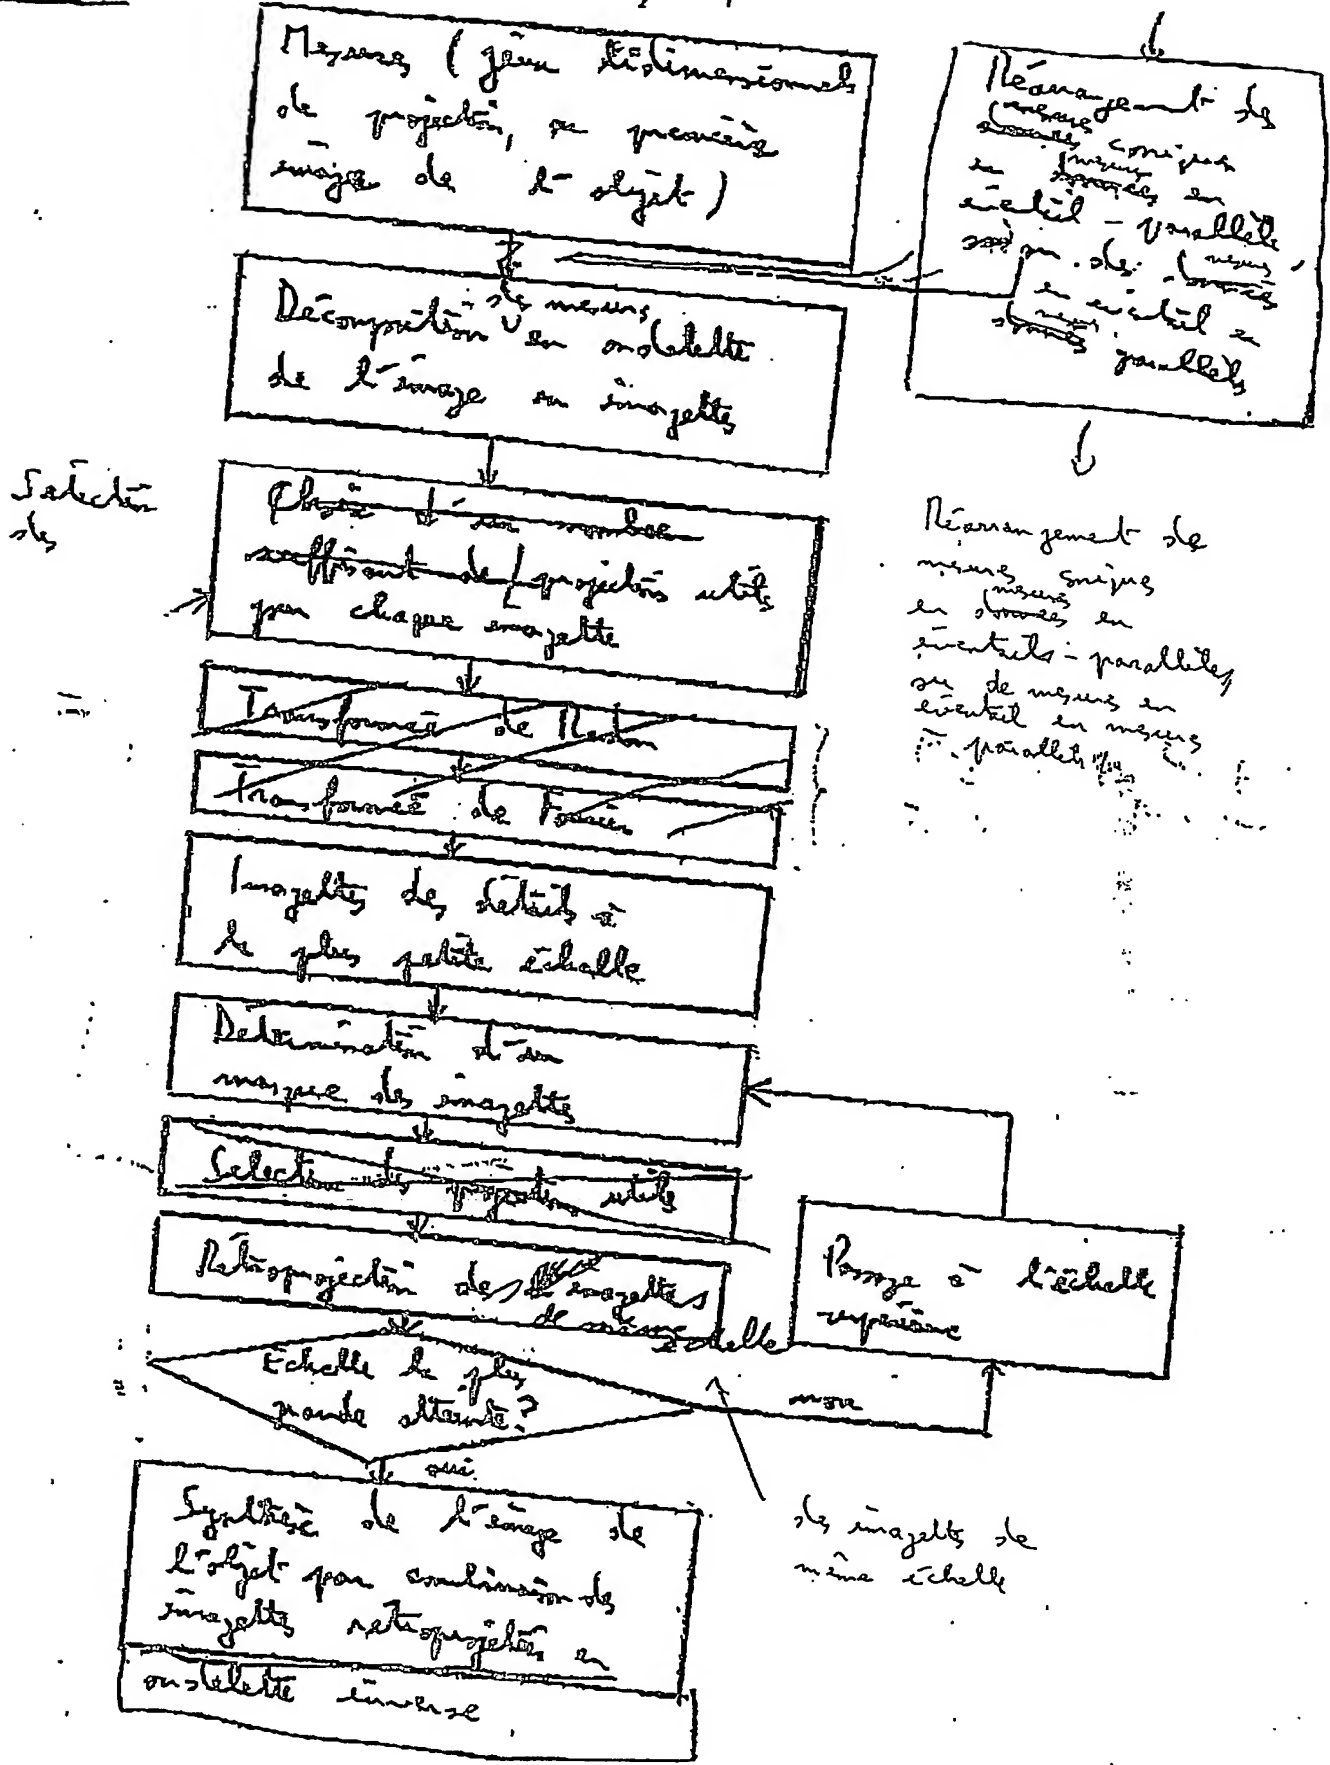 Mesures (jeux bidimensionnels
de projection, ou première
image de l'objet)
Réarrangement des
mesures
données coniques
mesures
en données en
éventail-parallèle
ou des mesures
données
en éventail en
mesures
données parallèles
des mesures
Décomposition en ondelette
de l'image en imagettes
Sélection
des
Choix d'un nombre
suffisant de projections utiles
pour chaque imagette
Réarrangement de
mesures coniques
mesures
en données en
éventails-parallèles,
ou de mesures en
éventail en mesures
parallèles
Transformée de Radon
Transformée de Fourier
Imagettes des détails à
la plus petite échelle
Détermination d'un
masque des imagettes
Sélection des projections utiles
Rétroprojection des imagettes
de même échelle
Passage à l'échelle
supérieure
Echelle la plus
grande atteinte?
non
oui
Synthèse de l'image de
l'objet par combinaison des
imagettes rétroprojetées en
ondelette inverse
des imagettes de
même échelle